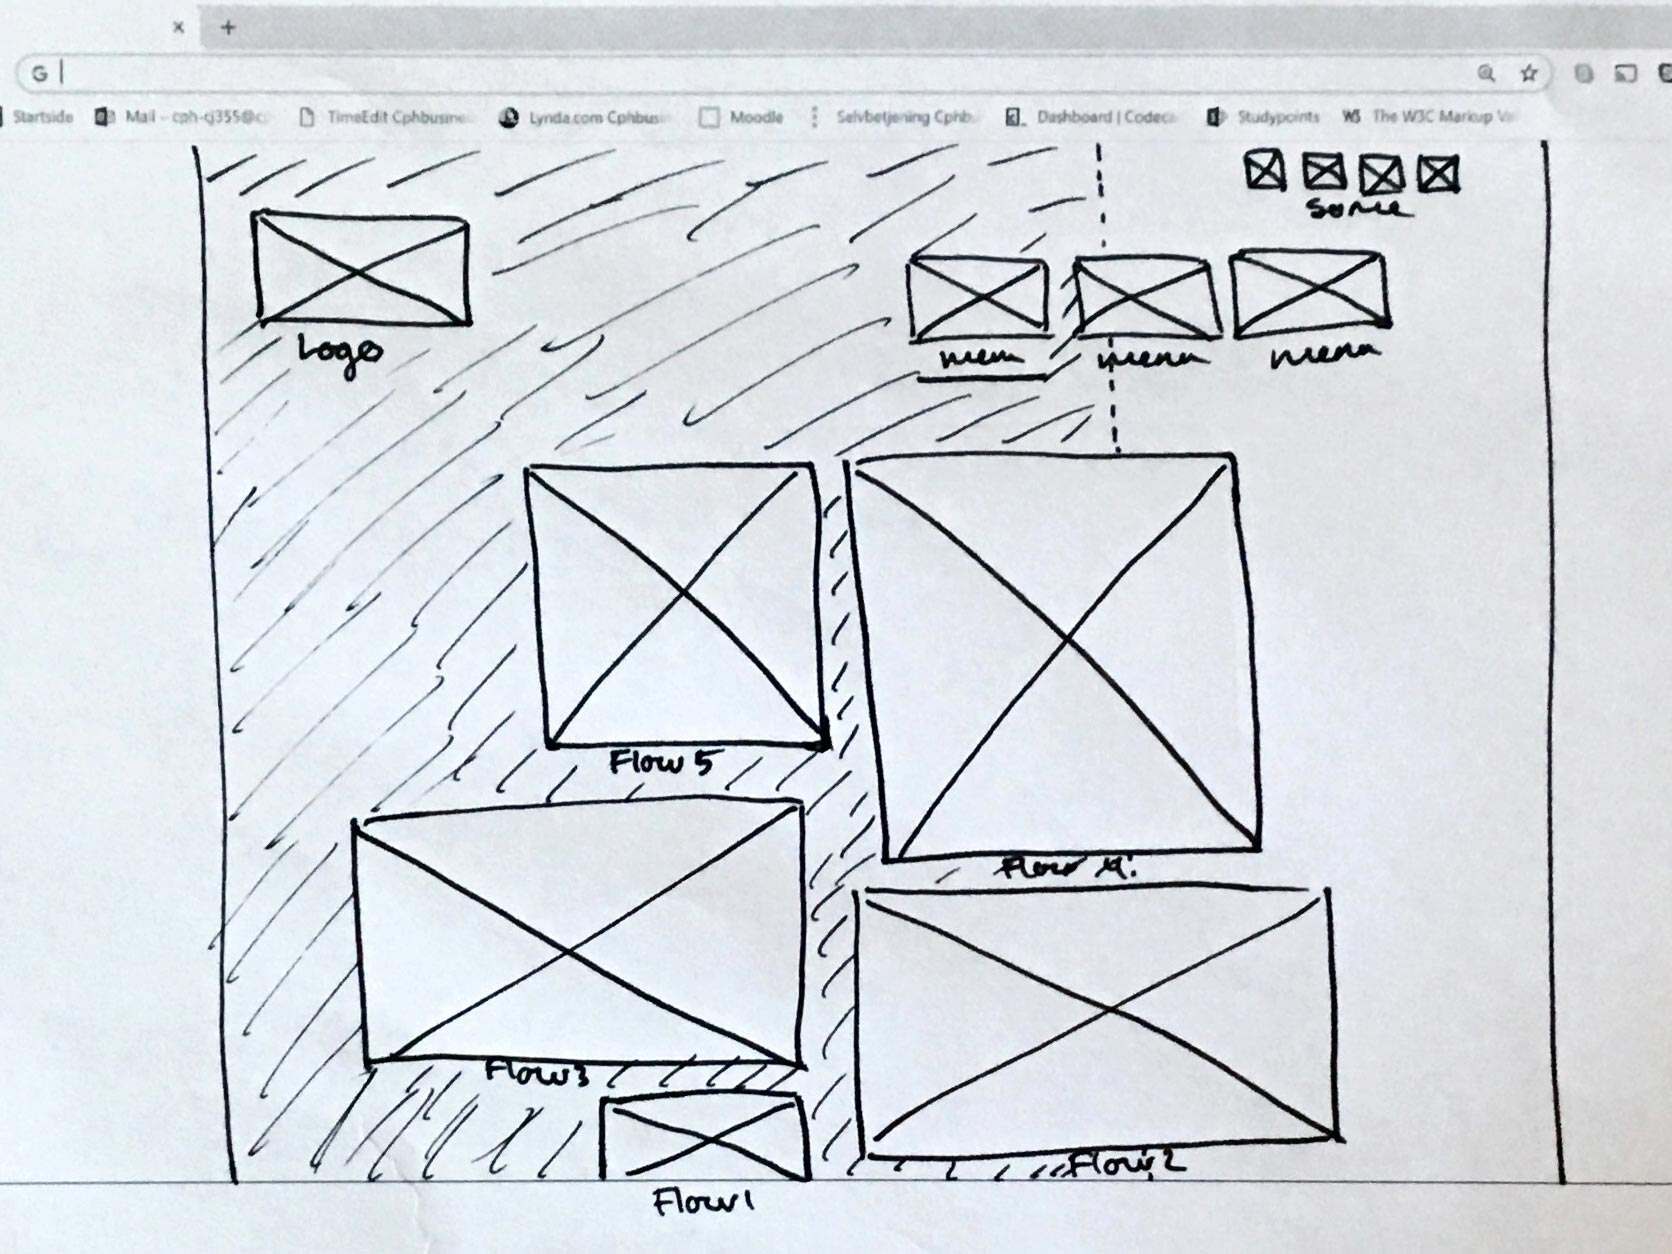 × +
G
Startside Mail - cph-cj355@c TimeEdit Cphbusine Lynda.com Cphbusi Moodle Selvbetjening Cphb Dashboard | Codeca Studypoints W3 The W3C Markup Va
SoMe
Logo
menu menu menu
Flow 5
Flow 4
Flow 3
Flow 2
Flow 1